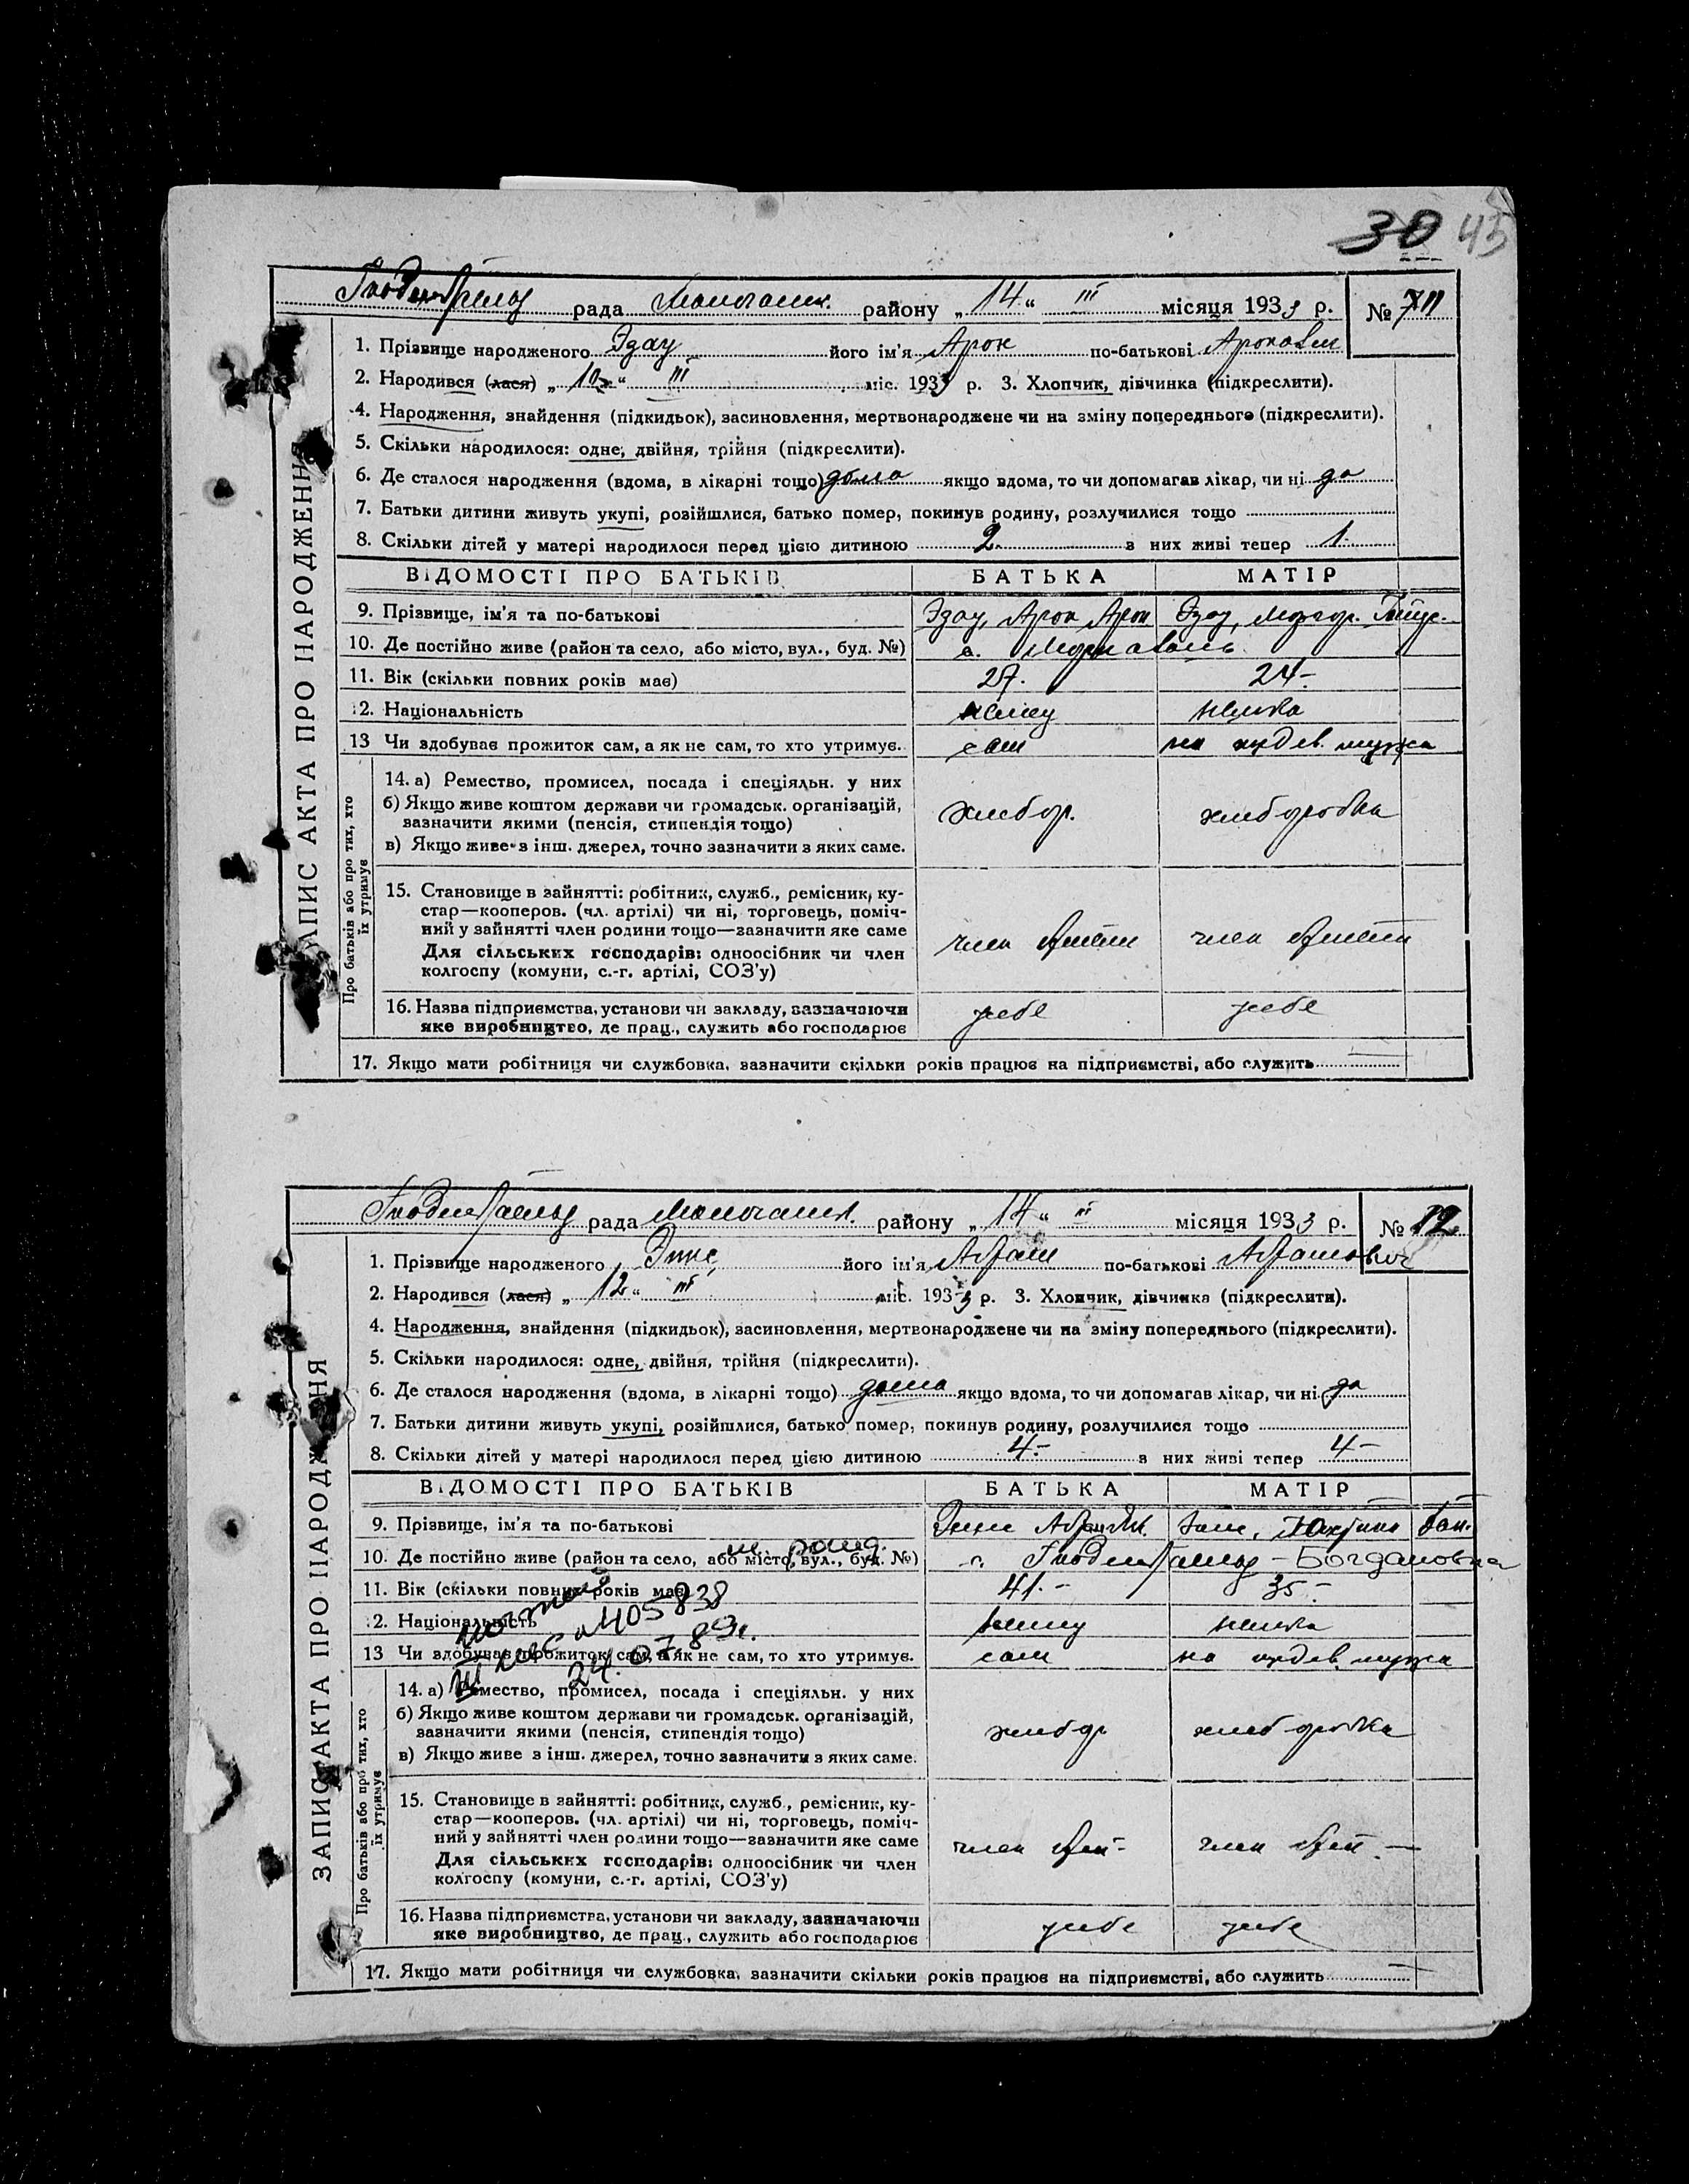 30 45
рада Молочанск. району „14“ III місяця 1933 р. № 11
1. Прізвище народженого Эзау його ім'я Арон по-батькові
2. Народився (лася) „10“ III міс. 1933 р. 3. Хлопчик, дівчинка (підкреслити).
4. Народження, знайдення (підкидьок), засиновлення, мертвонароджене чи на зміну попереднього (підкреслити).
5. Скільки народилося: одне, двійня, трійня (підкреслити).
6. Де сталося народження (вдома, в лікарні тощо) дома якщо вдома, то чи допомагав лікар, чи ні да
7. Батьки дитини живуть укупі, розійшлися, батько помер, покинув родину, розлучилися тощо
8. Скільки дітей у матері народилося перед цією дитиною 2. з них живі тепер 1.
ЗАПИС АКТА ПРО НАРОДЖЕННЯ
ВІДОМОСТІ ПРО БАТЬКІВ БАТЬКА МАТІР
9. Прізвище, ім'я та по-батькові Эзау, Арон Арон Эзау,
10. Де постійно живе (район та село, або місто, вул., буд. №) с.
11. Вік (скільки повних років має) 27. 24-
12. Національність немец немка
13 Чи здобуває прожиток сам, а як не сам, то хто утримує. сам на иждев. мужа
Про батьків або про тих, хто їх утримує
14. а) Ремество, промисел, посада і спеціяльн. у них
б) Якщо живе коштом держави чи громадськ. організацій,
зазначити якими (пенсія, стипендія тощо) хлебор. хлеборобка
в) Якщо живе з інш. джерел, точно зазначити з яких саме.
15. Становище в зайнятті: робітник, служб., ремісник, ку-
стар—кооперов. (чл. артілі) чи ні, торговець, поміч-
ний у зайнятті член родини тощо—зазначити яке саме
Для сільських господарів: одноосібник чи член член артели член артели
колгоспу (комуни, с.-г. артілі, СОЗ'у)
16. Назва підприємства, установи чи закладу, зазначаючи
яке виробництво, де прац., служить або господарює
17. Якщо мати робітниця чи службовка, зазначити скільки років працює на підприємстві, або служить
рада Молочанск. району „14“ III місяця 1933 р. № 12
1. Прізвище народженого Эннс його ім'я Абрам по-батькові Абрамович
2. Народився (лася) „12“ III міс. 1933 р. 3. Хлопчик, дівчинка (підкреслити).
4. Народження, знайдення (підкидьок), засиновлення, мертвонароджене чи на зміну попереднього (підкреслити).
5. Скільки народилося: одне, двійня, трійня (підкреслити).
6. Де сталося народження (вдома, в лікарні тощо) дома якщо вдома, то чи допомагав лікар, чи ні да
7. Батьки дитини живуть укупі, розійшлися, батько помер, покинув родину, розлучилися тощо
8. Скільки дітей у матері народилося перед цією дитиною 4.- з них живі тепер 4-
ЗАПИС АКТА ПРО НАРОДЖЕННЯ
ВІДОМОСТІ ПРО БАТЬКІВ БАТЬКА МАТІР
9. Прізвище, ім'я та по-батькові Эннс
10. Де постійно живе (район та село, або місто, вул., буд. №) с. Богдановка
11. Вік (скільки повних років має) 41.- 35-
405838
12. Національність немец немка
24.07.89г.
13 Чи здобуває прожиток сам, а як не сам, то хто утримує. сам на иждев. мужа
Про батьків або про тих, хто їх утримує
14. а) Ремество, промисел, посада і спеціяльн. у них
б) Якщо живе коштом держави чи громадськ. організацій,
зазначити якими (пенсія, стипендія тощо) хлебор хлеборобка
в) Якщо живе з інш. джерел, точно зазначити з яких саме.
15. Становище в зайнятті: робітник, служб., ремісник, ку-
стар—кооперов. (чл. артілі) чи ні, торговець, поміч-
ний у зайнятті член родини тощо—зазначити яке саме член арт- член арт.-
Для сільських господарів: одноосібник чи член
колгоспу (комуни, с.-г. артілі, СОЗ'у)
16. Назва підприємства, установи чи закладу, зазначаючи
яке виробництво, де прац., служить або господарює
17. Якщо мати робітниця чи службовка, зазначити скільки років працює на підприємстві, або служить